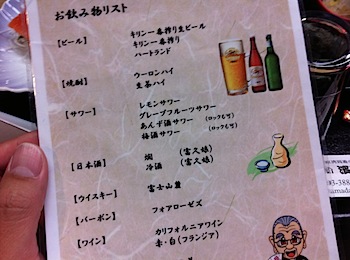 お飲み物リスト
【ビール】 キリン一番搾り生ビール
キリン一番搾り
ハートランド
【焼酎】 ウーロンハイ
生茶ハイ
【サワー】 レモンサワー
グレープフルーツサワー
あんず酒サワー (ロックも可)
梅酒サワー (ロックも可)
【日本酒】 燗 (富久娘)
冷酒 (富久娘)
【ウイスキー】 富士山麓
【バーボン】 フォアローゼズ
【ワイン】 カリフォルニアワイン
赤・白(フランジア)